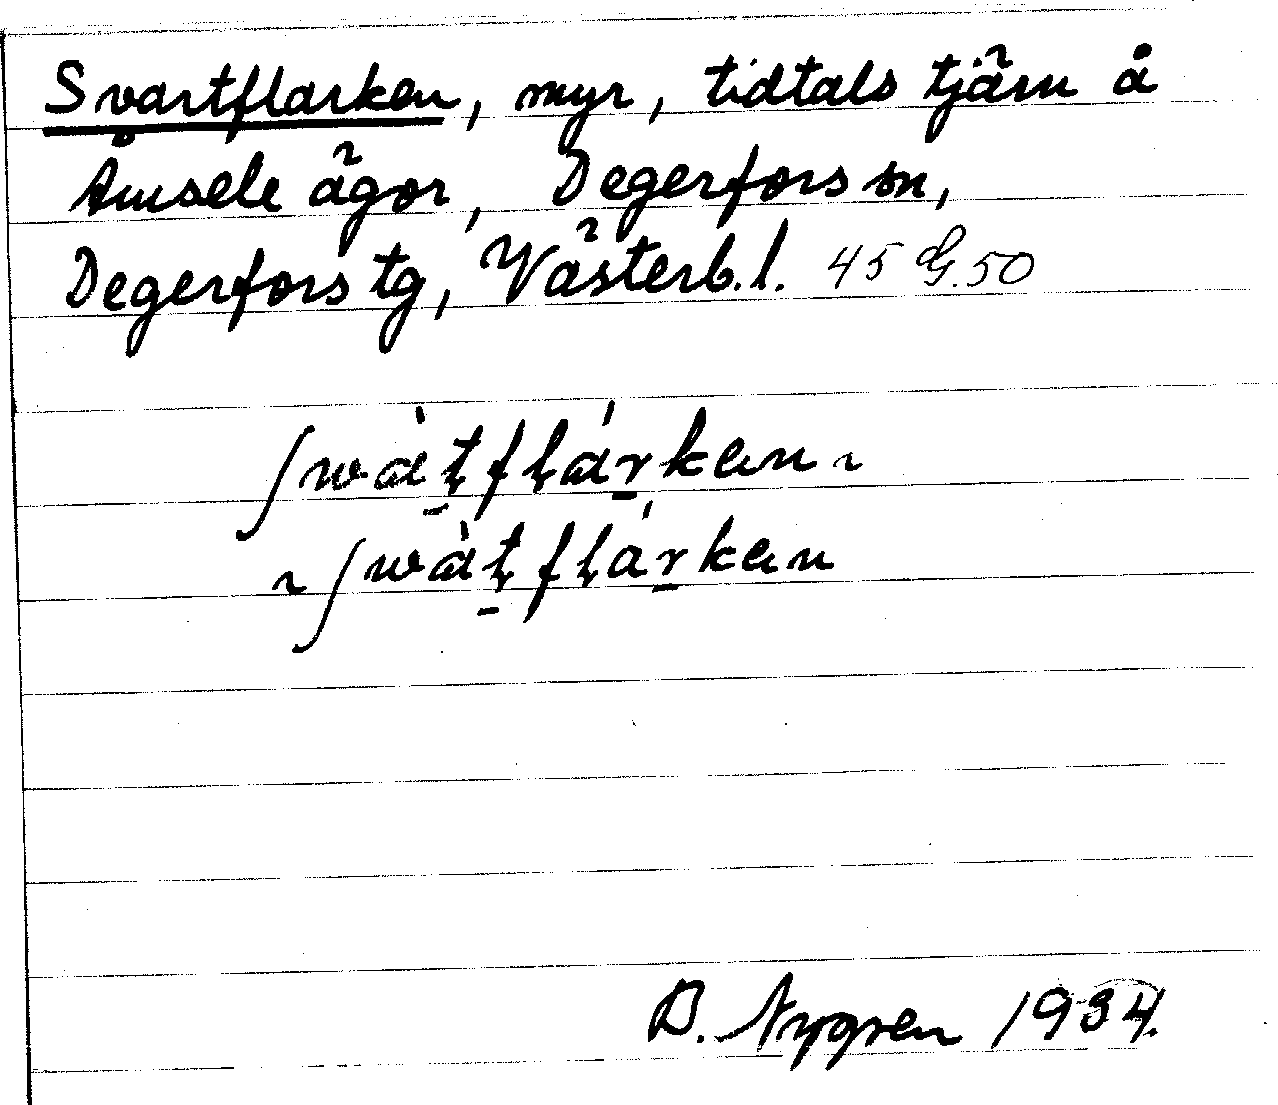 Svartflarken, myr, tidtals tjärn å
Åmsele ägor, Degerfors sn,
Degerfors tg, Västerb.l. 45 G.50
ʃwàt̠flár̠kən ~
~ ʃwàt̠flár̠kən
B. Nygren 1934.